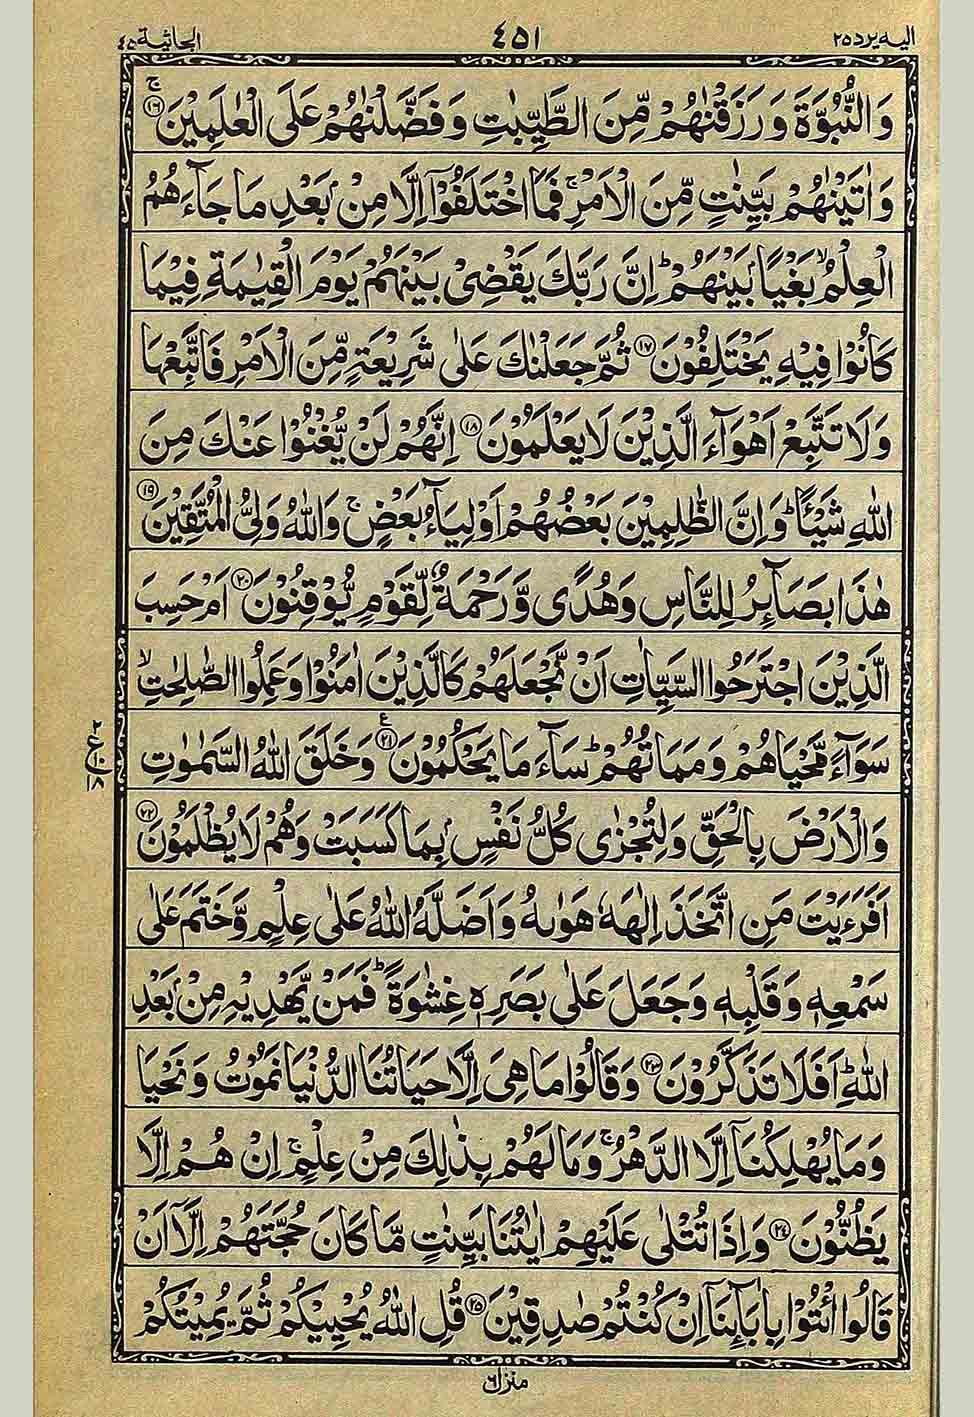 الیه یرد ۲۵
۴۵۱
الجاثیة ۴۵
وَالنُّبُوَّةَ وَرَزَقْنٰهُمْ مِّنَ الطَّيِّبٰتِ وَفَضَّلْنٰهُمْ عَلَى الْعٰلَمِيْنَ ۚ﴿۱۶﴾
وَاٰتَيْنٰهُمْ بَيِّنٰتٍ مِّنَ الْاَمْرِ ۚ فَمَا اخْتَلَفُوْۤا اِلَّا مِنْۢ بَعْدِ مَا جَآءَهُمُ
الْعِلْمُ ۙ بَغْيًاۢ بَيْنَهُمْ ؕ اِنَّ رَبَّكَ يَقْضِىْ بَيْنَهُمْ يَوْمَ الْقِيٰمَةِ فِيْمَا
كَانُوْا فِيْهِ يَخْتَلِفُوْنَ ﴿۱۷﴾ ثُمَّ جَعَلْنٰكَ عَلٰى شَرِيْعَةٍ مِّنَ الْاَمْرِ فَاتَّبِعْهَا
وَلَا تَتَّبِعْ اَهْوَآءَ الَّذِيْنَ لَا يَعْلَمُوْنَ ﴿۱۸﴾ اِنَّهُمْ لَنْ يُّغْنُوْا عَنْكَ مِنَ
اللّٰهِ شَيْـًٔا ؕ وَاِنَّ الظّٰلِمِيْنَ بَعْضُهُمْ اَوْلِيَآءُ بَعْضٍ ۚ وَاللّٰهُ وَلِىُّ الْمُتَّقِيْنَ ﴿۱۹﴾
هٰذَا بَصَآئِرُ لِلنَّاسِ وَهُدًى وَّرَحْمَةٌ لِّقَوْمٍ يُّوْقِنُوْنَ ﴿۲۰﴾ اَمْ حَسِبَ
الَّذِيْنَ اجْتَرَحُوا السَّيِّاٰتِ اَنْ نَّجْعَلَهُمْ كَالَّذِيْنَ اٰمَنُوْا وَعَمِلُوا الصّٰلِحٰتِ ۙ
سَوَآءً مَّحْيَاهُمْ وَمَمَاتُهُمْ ؕ سَآءَ مَا يَحْكُمُوْنَ ﴿۲۱﴾ ع وَخَلَقَ اللّٰهُ السَّمٰوٰتِ
۲ ع ۱۰ ۱۸
وَالْاَرْضَ بِالْحَقِّ وَلِتُجْزٰى كُلُّ نَفْسٍۢ بِمَا كَسَبَتْ وَهُمْ لَا يُظْلَمُوْنَ ﴿۲۲﴾
اَفَرَءَيْتَ مَنِ اتَّخَذَ اِلٰهَهٗ هَوٰىهُ وَاَضَلَّهُ اللّٰهُ عَلٰى عِلْمٍ وَّخَتَمَ عَلٰى
سَمْعِهٖ وَقَلْبِهٖ وَجَعَلَ عَلٰى بَصَرِهٖ غِشٰوَةً ؕ فَمَنْ يَّهْدِيْهِ مِنْۢ بَعْدِ
اللّٰهِ ؕ اَفَلَا تَذَكَّرُوْنَ ﴿۲۳﴾ وَقَالُوْا مَا هِىَ اِلَّا حَيَاتُنَا الدُّنْيَا نَمُوْتُ وَنَحْيَا
وَمَا يُهْلِكُنَاۤ اِلَّا الدَّهْرُ ۚ وَمَا لَهُمْ بِذٰلِكَ مِنْ عِلْمٍ ۚ اِنْ هُمْ اِلَّا
يَظُنُّوْنَ ﴿۲۴﴾ وَاِذَا تُتْلٰى عَلَيْهِمْ اٰيٰتُنَا بَيِّنٰتٍ مَّا كَانَ حُجَّتَهُمْ اِلَّاۤ اَنْ
قَالُوا ائْتُوْا بِاٰبَآئِنَاۤ اِنْ كُنْتُمْ صٰدِقِيْنَ ﴿۲۵﴾ قُلِ اللّٰهُ يُحْيِيْكُمْ ثُمَّ يُمِيْتُكُمْ
منزل ۶